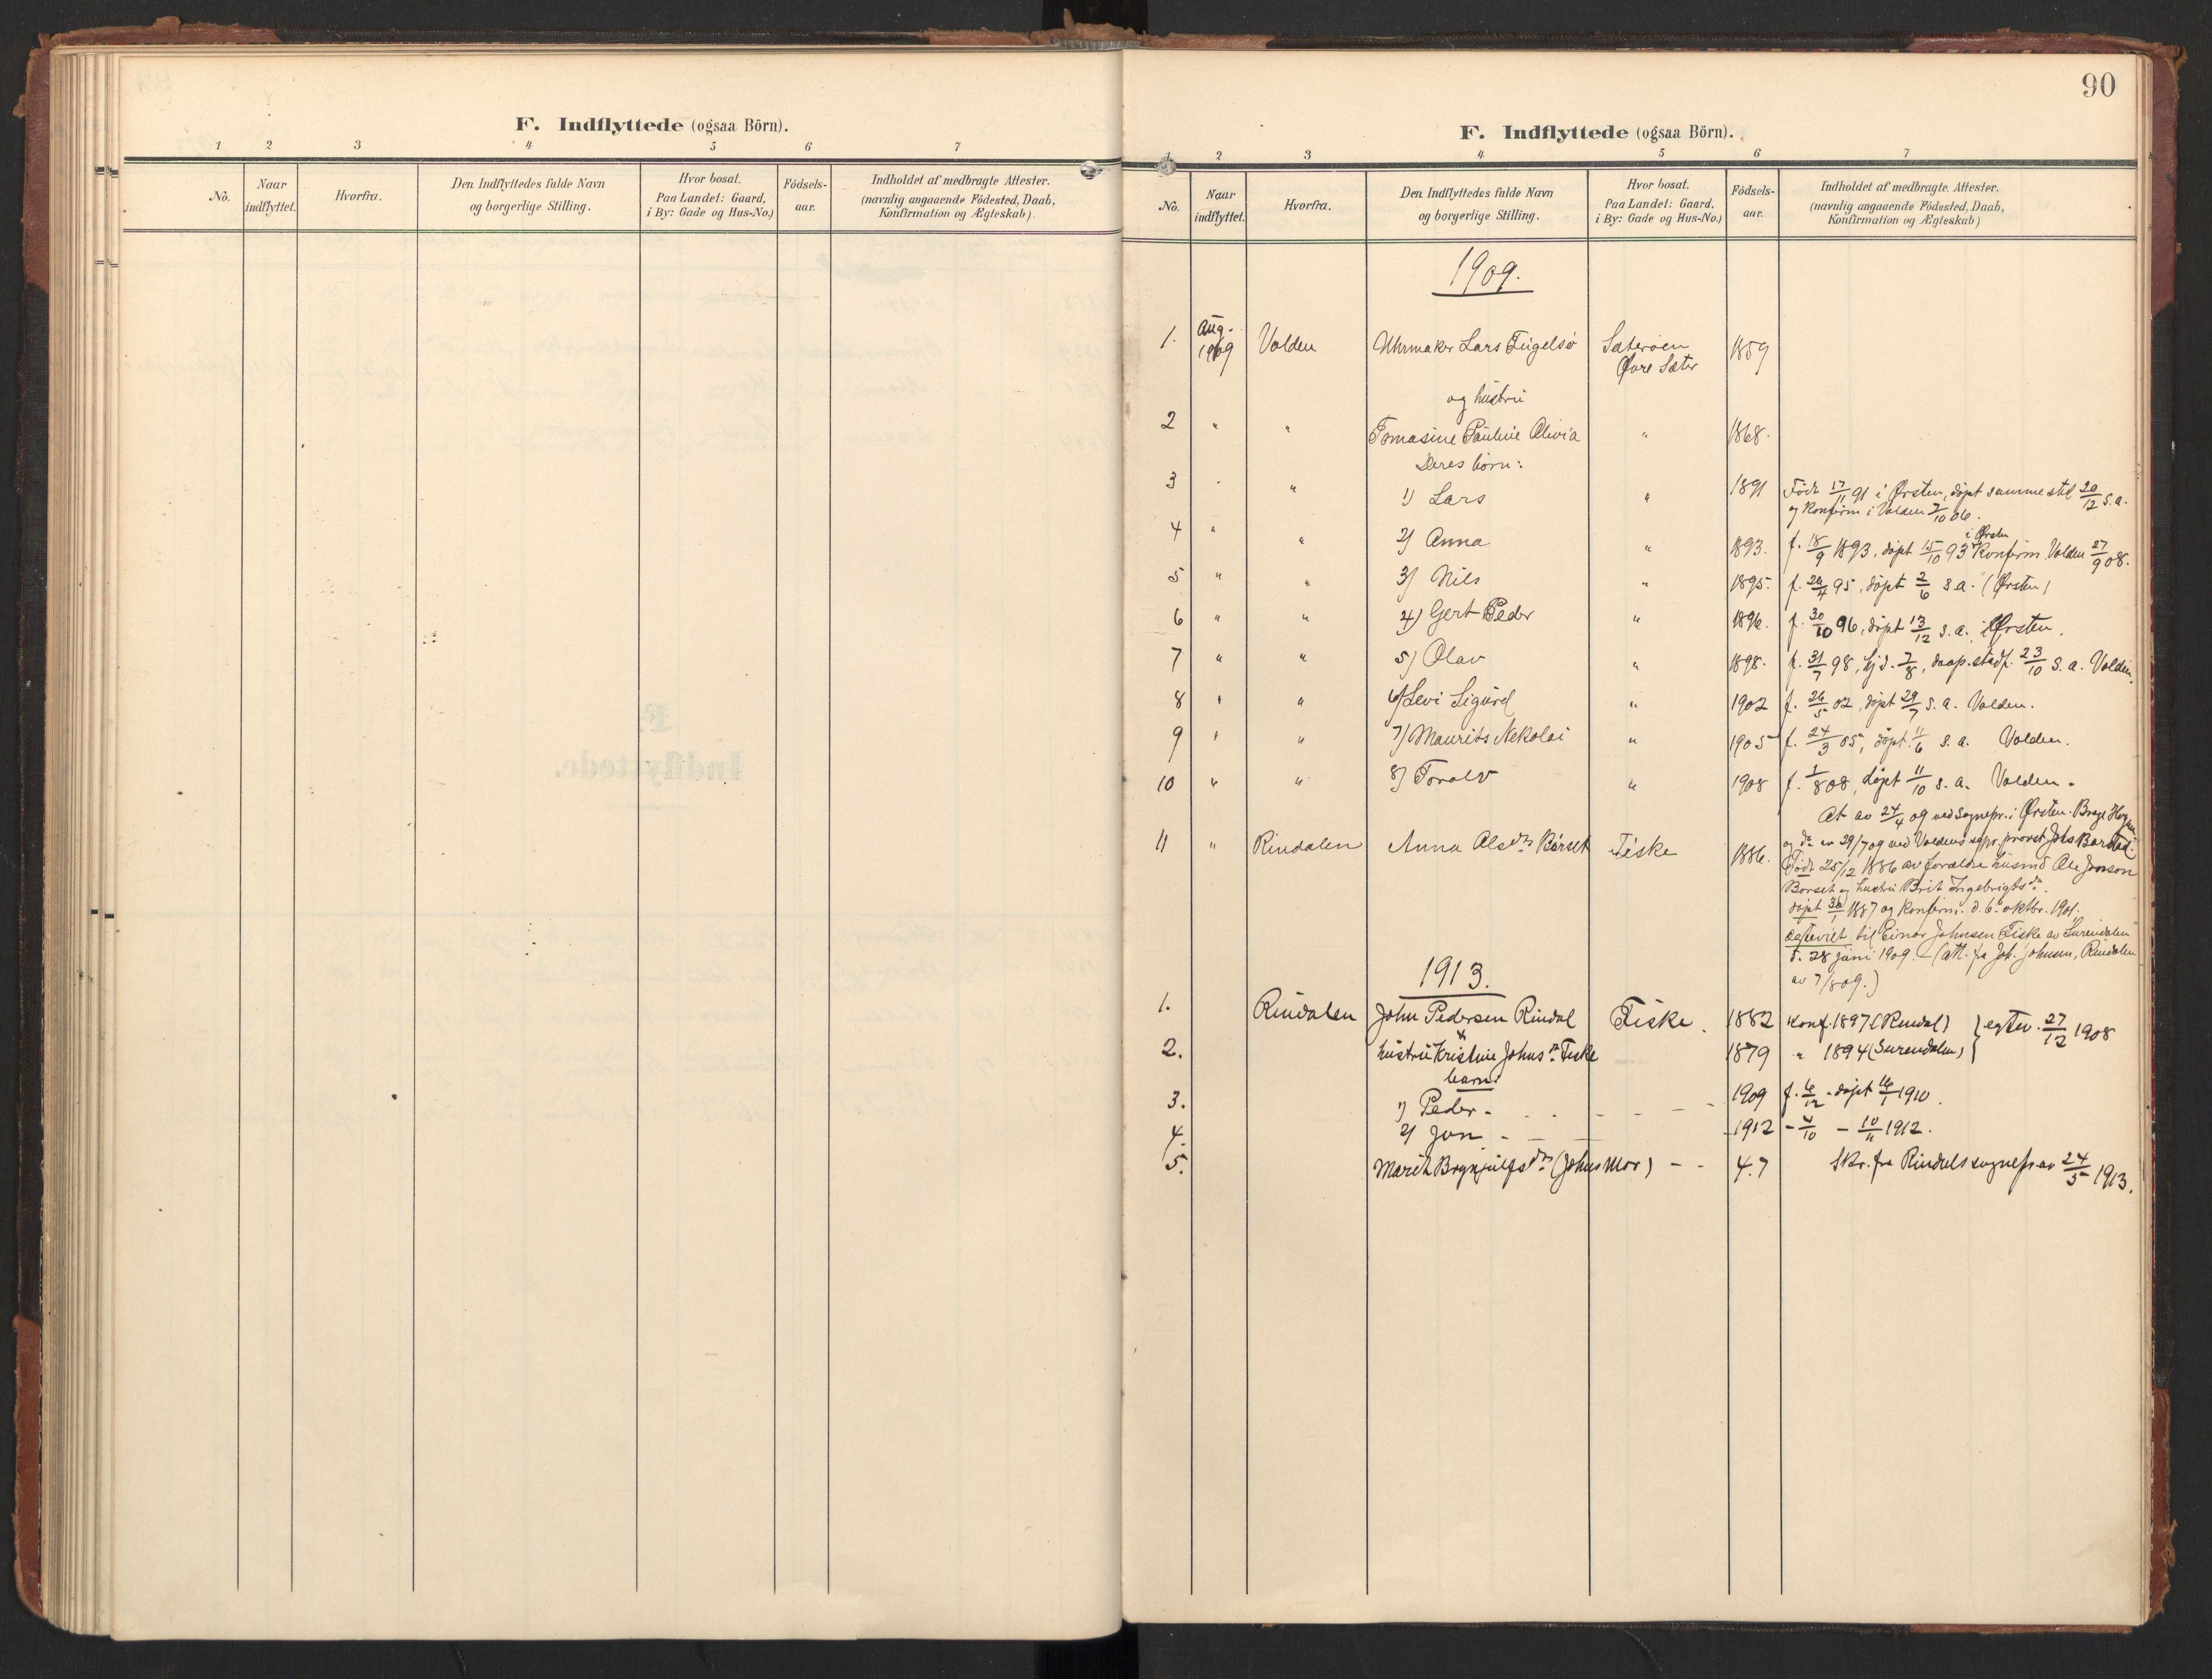 F. Indflyttede (ogsaa Börn).
1 2 3 4 5 6 7
No. Naar indflyttet. Hvorfra. Den Indflyttedes fulde Navn og borgerlige Stilling. Hvor bosat. Paa Landet: Gaard, i By: Gade og Hus-No.) Födsels-aar. Indholdet af medbragte Attester. (navnlig angaaende Födested, Daab, Konfirmation og Ægteskab)
90
F. Indflyttede (ogsaa Börn).
1 2 3 4 5 6 7
No. Naar indflyttet. Hvorfra. Den Indflyttedes fulde Navn og borgerlige Stilling. Hvor bosat. Paa Landet: Gaard, i By: Gade og Hus-No.) Födsels-aar. Indholdet af medbragte Attester. (navnlig angaaende Födested, Daab, Konfirmation og Ægteskab)
1909.
1. Aug. 1909 Volden Uhrmaker Lars Fugelsö Sæterøen Øvre Sæter 1859
og hustru
2 " " Tomasine Pauline Olivia " 1868.
Deres börn:
3 " " 1) Lars " 1891 Född 17/11 91 i Ørsten, döpt sammested 20/12 s.a.
og konfirm i Volden 7/10 06.
i Ørsten
4 " " 2) Anna " 1893. f. 18/9 1893, döpt 15/10 93 Konfirm. Volden 27/9 08.
5 " " 3) Nils " 1895. f. 20/4 95, döpt 2/6 s.a. (Ørsten)
6 " " 4) Gert Peder " 1896. f. 30/10 96, döpt 13/12 s.a. i Ørsten.
7 " " 5) Olav " 1898. f. 31/7 98, hj.d. 7/8, daap. stadf. 23/10 s.a. Volden.
8 " " 6) Levi Sigurd " 1902 f. 26/5 02, döpt 29/7 s.a. Volden.
9 " " 7) Maurits Nekolai " 1905 f. 24/3 05, döpt 11/6 s.a. Volden.
10 " " 8) Toralv " 1908 f. 1/8 08, döpt 11/10 s.a. Volden.
At av 24/4 09 ved sognepr. i Ørsten. Brage
og do av 29/7 09 ved Voldens sgpr. provst Barstad.
11 " Rindalen Anna Olsdtr Börset Fiske 1886. Född 25/12 1886 av forældre husmd Ole Jonson
Börset og hustru Brit Ingebrigtsdtr.
döpt 30/1 1887 og konfirm. d. 6. oktbr. 1901.
egteviet til Einar Johnsen Fiske av Surendalen
d. 28 juni 1909. - (att. fra Joh. Johnsen, Rindalen
av 7/8 09.)
1913.
1. Rindalen John Pedersen Rindal Fiske. 1882 Konf. 1897 (Rindal) } egtev. 27/12 1908
2. hustru Kristine Johnsdtr Fiske 1879 " 1894 (Surendalen)
barn:
3. 1) Peder - - - - - - 1909 f. 6/12 - döpt 16/1 1910.
4. 2) Jon - - - 1912 - 4/10 - 10/11 1912.
5. Marit Brynjulfsdtr (Johns Mor) - - 47 Skr. fra Rindals sognepr av 24/5 1913.